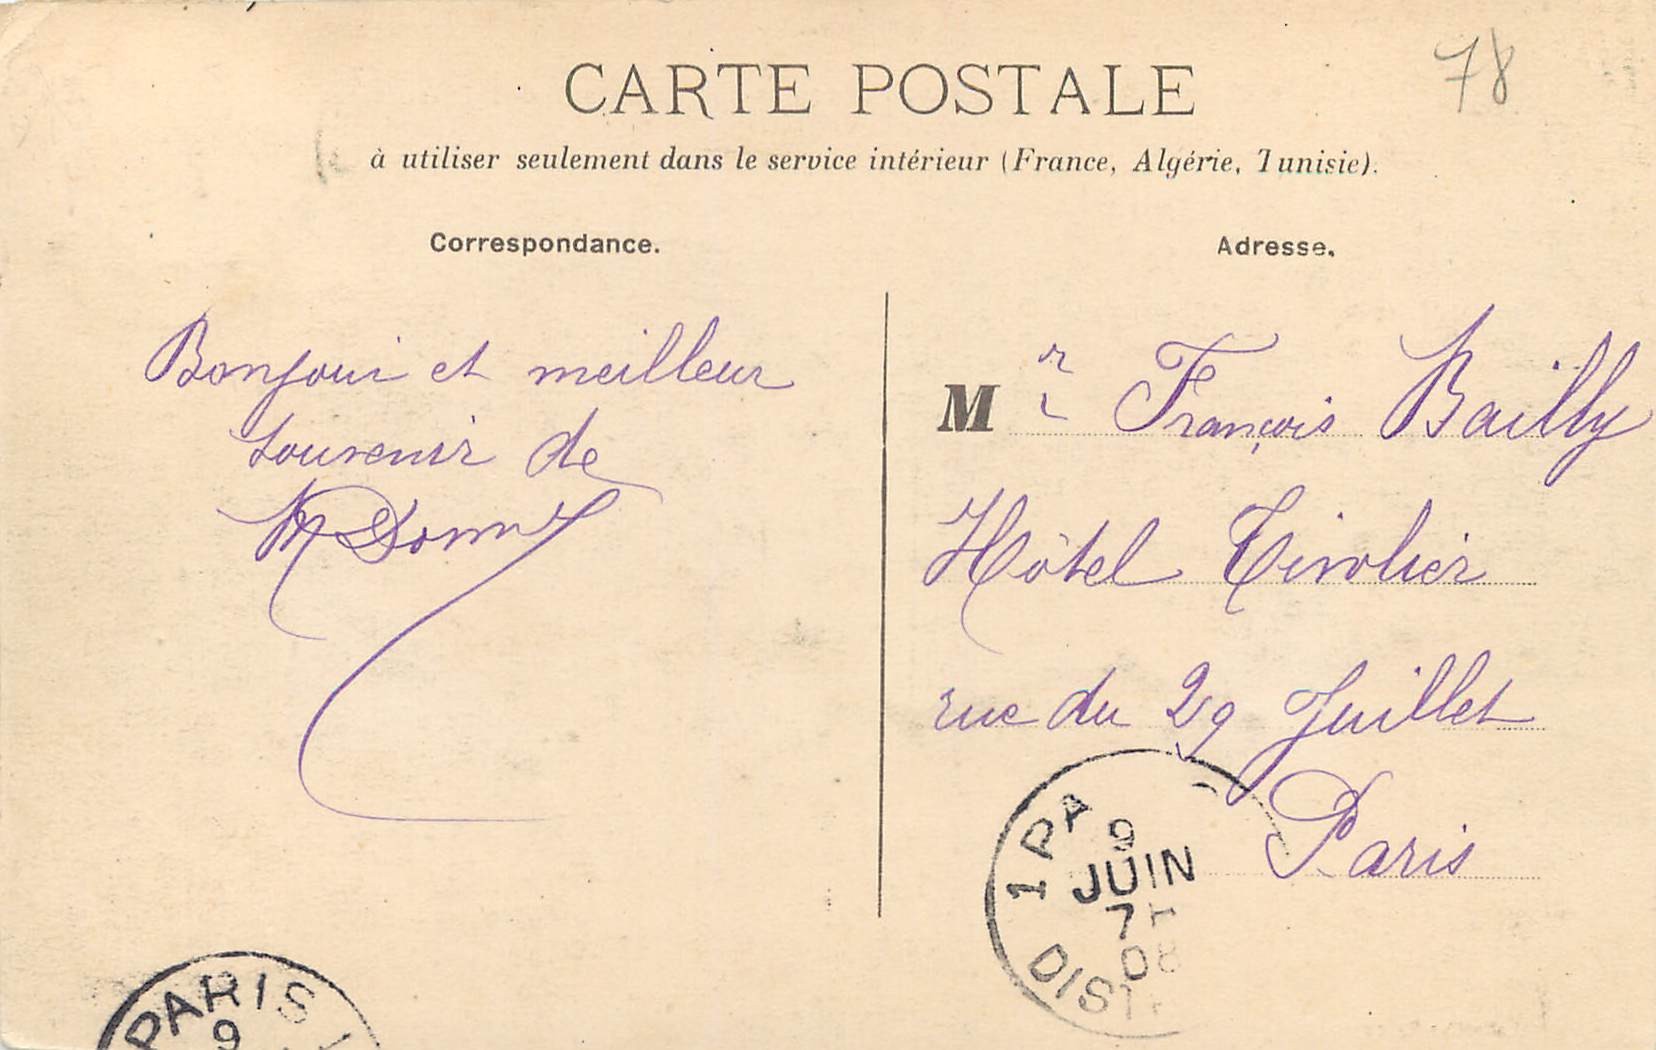 78
CARTE POSTALE
à utiliser seulement dans le service intérieur (France, Algérie, Tunisie).
Correspondance.
Adresse.
Bonjour et meilleur
souvenir de
M
Mr François Bailly
Hôtel Tivolier
rue du 29 Juillet
Paris
1 PA
9
JUIN
7
08
DIST
PARIS
9